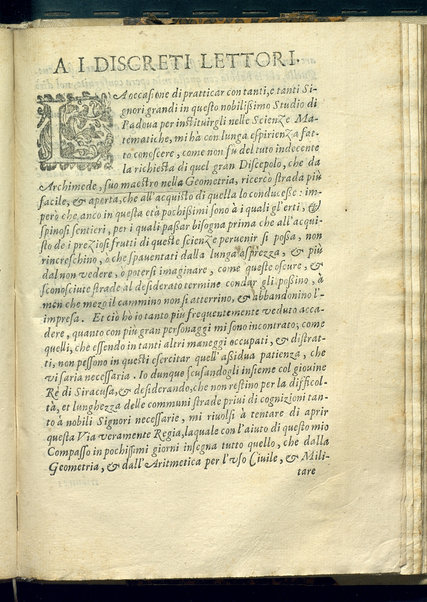 A I DISCRETI LETTORI.
LA occasione di pratticar con tanti, e tanti Si-
gnori grandi in questo nobilissimo Studio di
Padoua per instituirgli nelle Scienze Ma-
tematiche, mi hà con lunga espirienza fat-
to conoscere, come non fù del tuto indecente
la richiesta di quel gran Discepolo, che da
Archimede, suo maestro nella Geometria, ricercò strada più
facile, & aperta, che all'acquisto di quella lo conducesse: im-
però che anco in questa età pochissimi sono à i quali gl'erti, &
spinosi sentieri, per i quali passar bisogna prima che all'acqui-
sto de i preziosi frutti di queste scienze peruenir si possa, non
rincreschino, o che spauentati dalla lunga asprezza, & più
dal non vedere, o potersi imaginare, come queste oscure, &
sconosciute strade al desiderato termine condur gli possino, à
men che mezo il cammino non si atterrino, & abbandonino l'-
impresa. Et ciò hò io tanto più frequentemente veduto acca-
dere, quanto con più gran personaggi mi sono incontrato; come
quelli, che essendo in tanti altri maneggi occupati, & distrat-
ti, non possono in questi esercitar quell'assidua patienza, che
vi saria necessaria. Io dunque scusandogli insieme col giouine
Rè di Siracusa, & desiderando, che non restino per la difficol-
tà, et lunghezza delle communi strade priui di cognizioni tan-
to à nobili Signori necessarie, mi riuolsi à tentare di aprir
questa Via veramente Regia, laquale con l'aiuto di questo mio
Compasso in pochissimi giorni insegna tutto quello, che dalla
Geometria, & dall'Aritmetica per l'vso Ciuile, & Mili-
tare